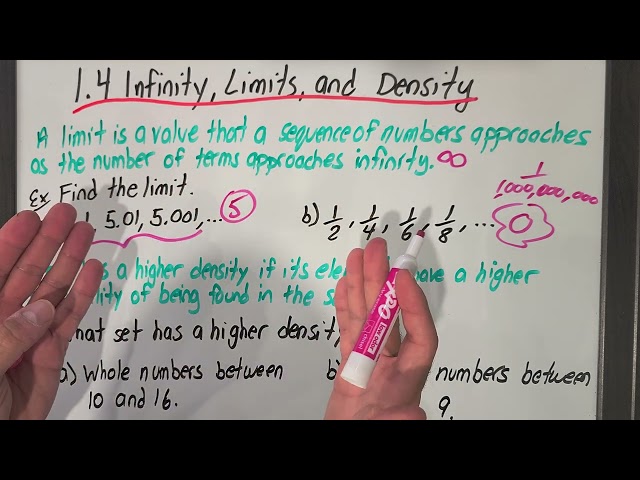 1.4 Infinity, Limits, and Density
A limit is a value that a sequence of numbers approaches
as the number of terms approaches infinity. ∞
Ex Find the limit.
1, 5.01, 5.001, ... 5
b) 1/2, 1/4, 1/6, 1/8, ... 0
1/1,000,000,000
a higher density if its have a higher
of being found in the
set has a higher density
a) Whole numbers between
10 and 16.
numbers between
9.
EXPO
low odor